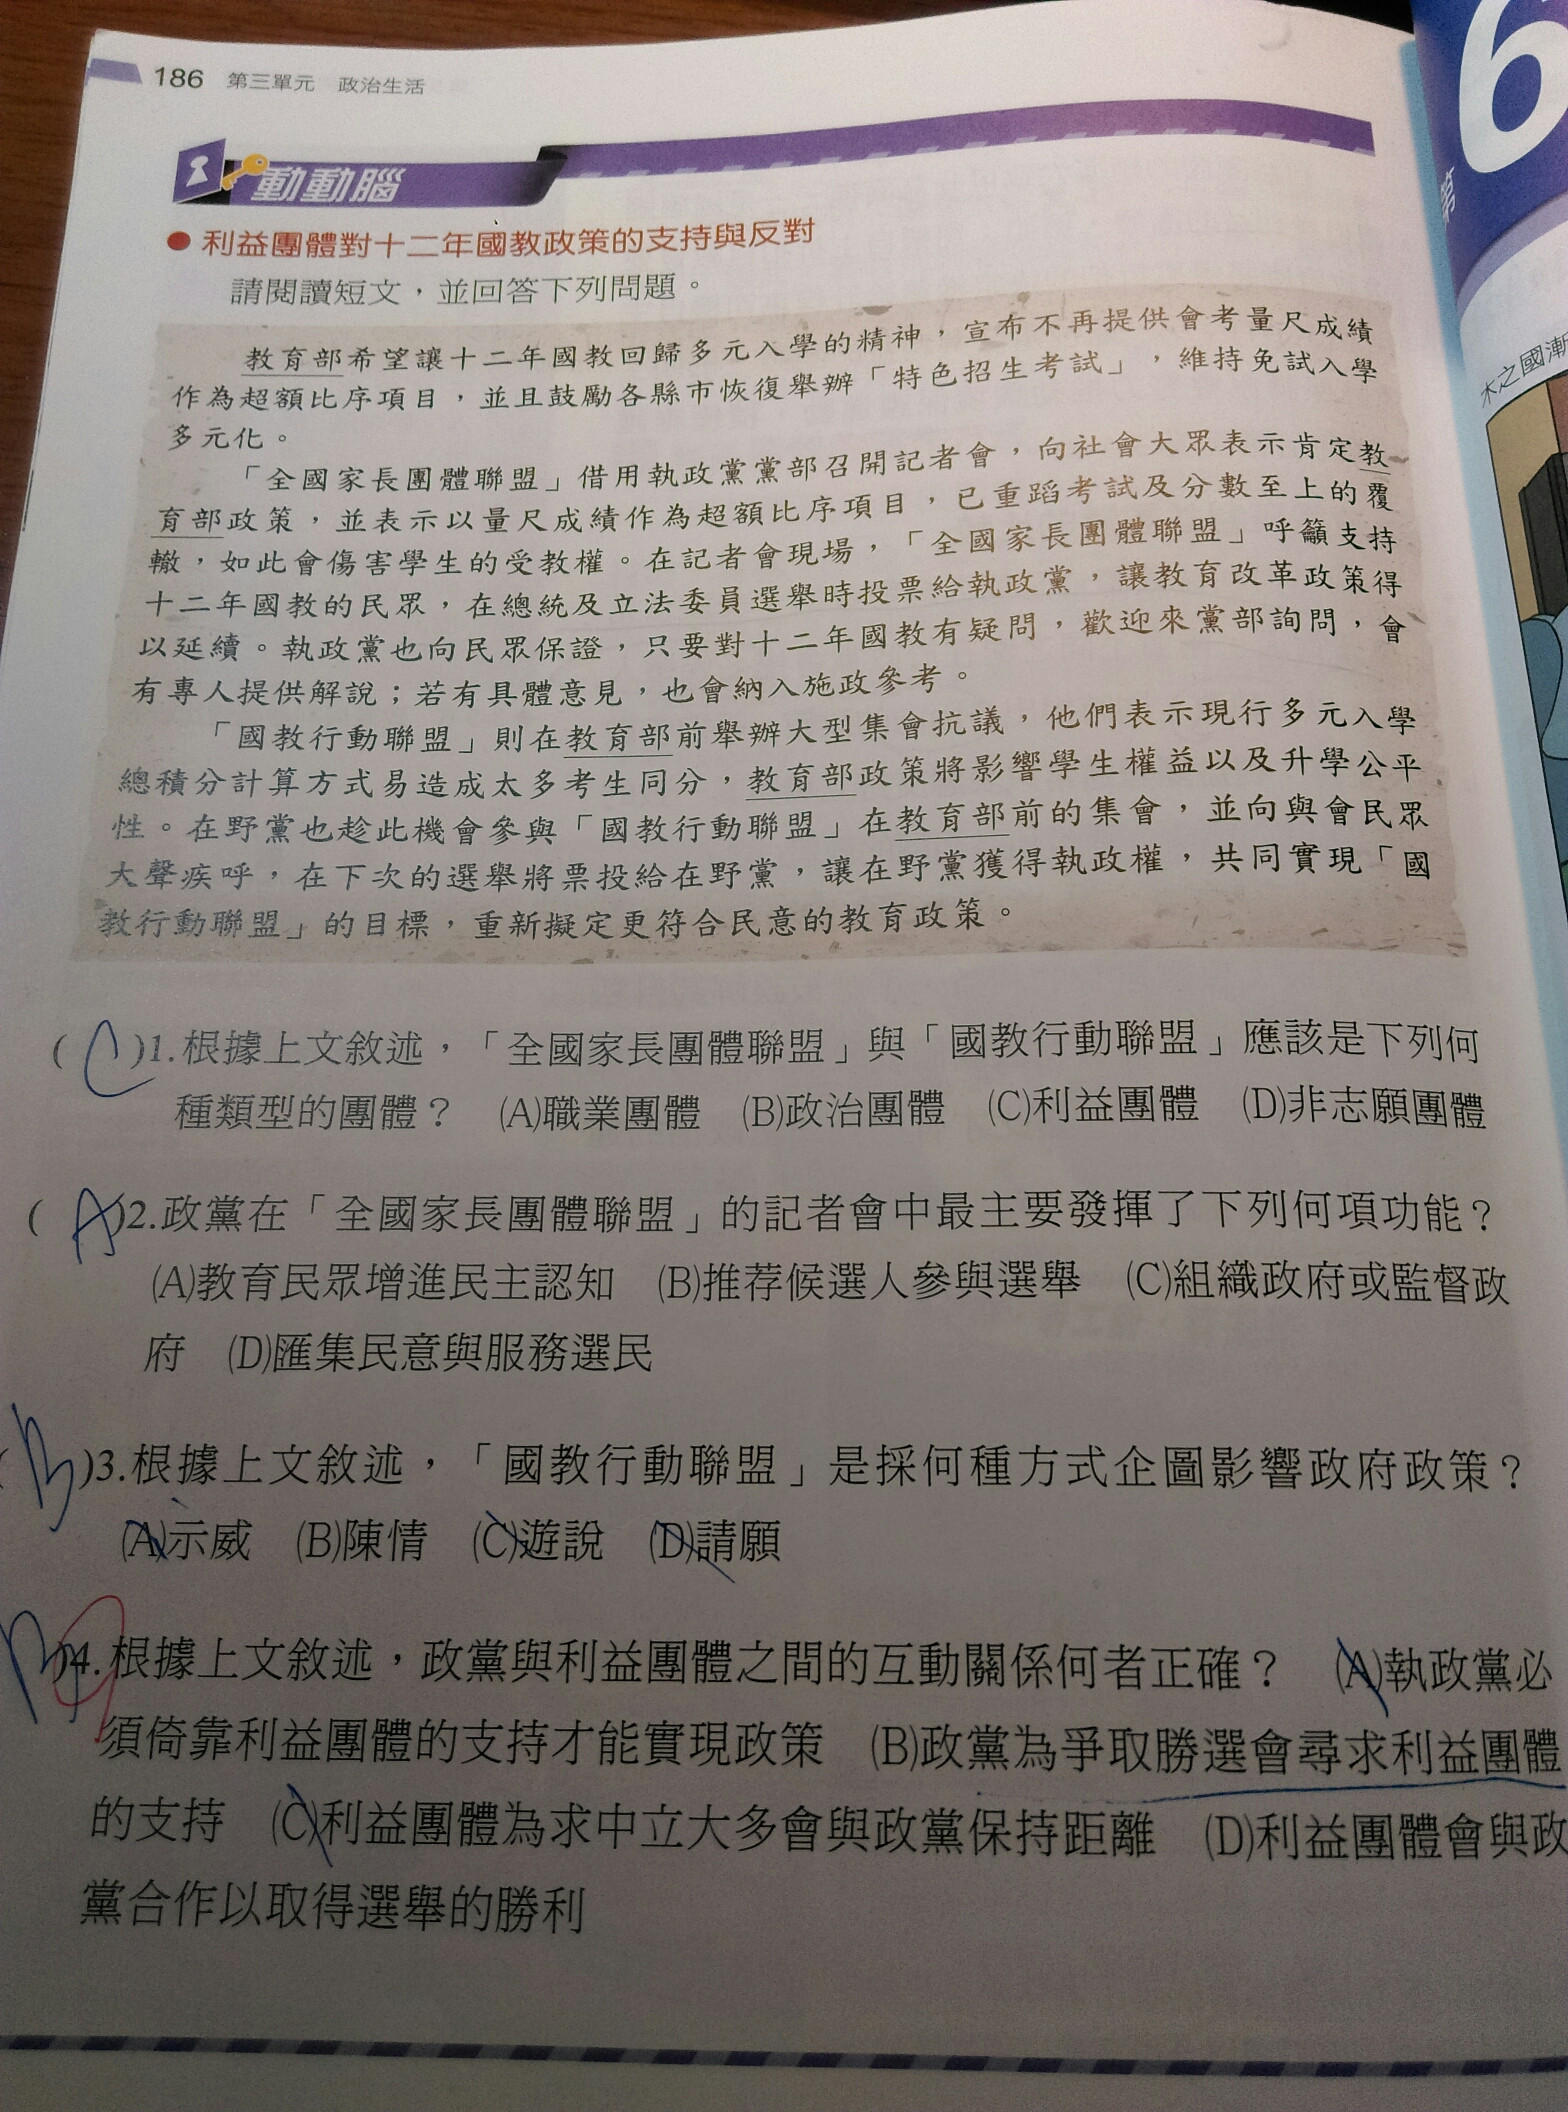 186 第三單元 政治生活
6
第
動動腦
●利益團體對十二年國教政策的支持與反對
請閱讀短文，並回答下列問題。
教育部希望讓十二年國教回歸多元入學的精神，宣布不再提供會考量尺成績
作為超額比序項目，並且鼓勵各縣市恢復舉辦「特色招生考試」，維持免試入學
多元化。
「全國家長團體聯盟」借用執政黨黨部召開記者會，向社會大眾表示肯定教
育部政策，並表示以量尺成績作為超額比序項目，已重蹈考試及分數至上的覆
轍，如此會傷害學生的受教權。在記者會現場，「全國家長團體聯盟」呼籲支持
十二年國教的民眾，在總統及立法委員選舉時投票給執政黨，讓教育改革政策得
以延續。執政黨也向民眾保證，只要對十二年國教有疑問，歡迎來黨部詢問，會
有專人提供解說；若有具體意見，也會納入施政參考。
「國教行動聯盟」則在教育部前舉辦大型集會抗議，他們表示現行多元入學
總積分計算方式易造成太多考生同分，教育部政策將影響學生權益以及升學公平
性。在野黨也趁此機會參與「國教行動聯盟」在教育部前的集會，並向與會民眾
大聲疾呼，在下次的選舉將票投給在野黨，讓在野黨獲得執政權，共同實現「國
教行動聯盟」的目標，重新擬定更符合民意的教育政策。
( C )1.根據上文敘述，「全國家長團體聯盟」與「國教行動聯盟」應該是下列何
種類型的團體？ (A)職業團體 (B)政治團體 (C)利益團體 (D)非志願團體
( A )2.政黨在「全國家長團體聯盟」的記者會中最主要發揮了下列何項功能？
(A)教育民眾增進民主認知 (B)推荐候選人參與選舉 (C)組織政府或監督政
府 (D)匯集民意與服務選民
( B )3.根據上文敘述，「國教行動聯盟」是採何種方式企圖影響政府政策？
(A)示威 (B)陳情 (C)遊說 (D)請願
B )4.根據上文敘述，政黨與利益團體之間的互動關係何者正確？ (A)執政黨必
須倚靠利益團體的支持才能實現政策 (B)政黨為爭取勝選會尋求利益團體
的支持 (C)利益團體為求中立大多會與政黨保持距離 (D)利益團體會與政
黨合作以取得選舉的勝利
木之國漸